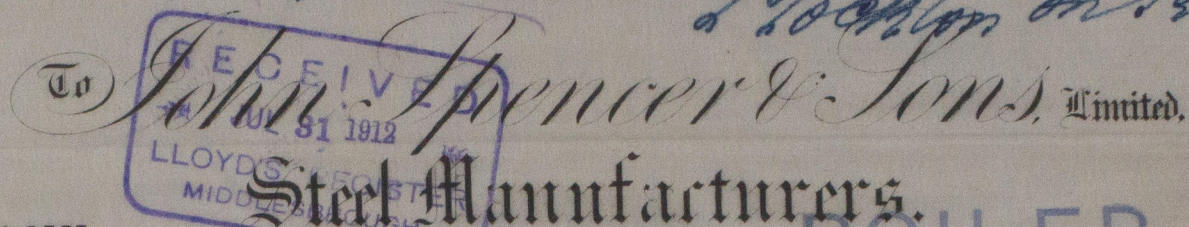 Stockton on
To John Spencer & Sons, Limited,
RECEIVED
JUL 31 1912
LLOYD'S REGISTER
MIDDLESBROUGH
Steel Manufacturers.